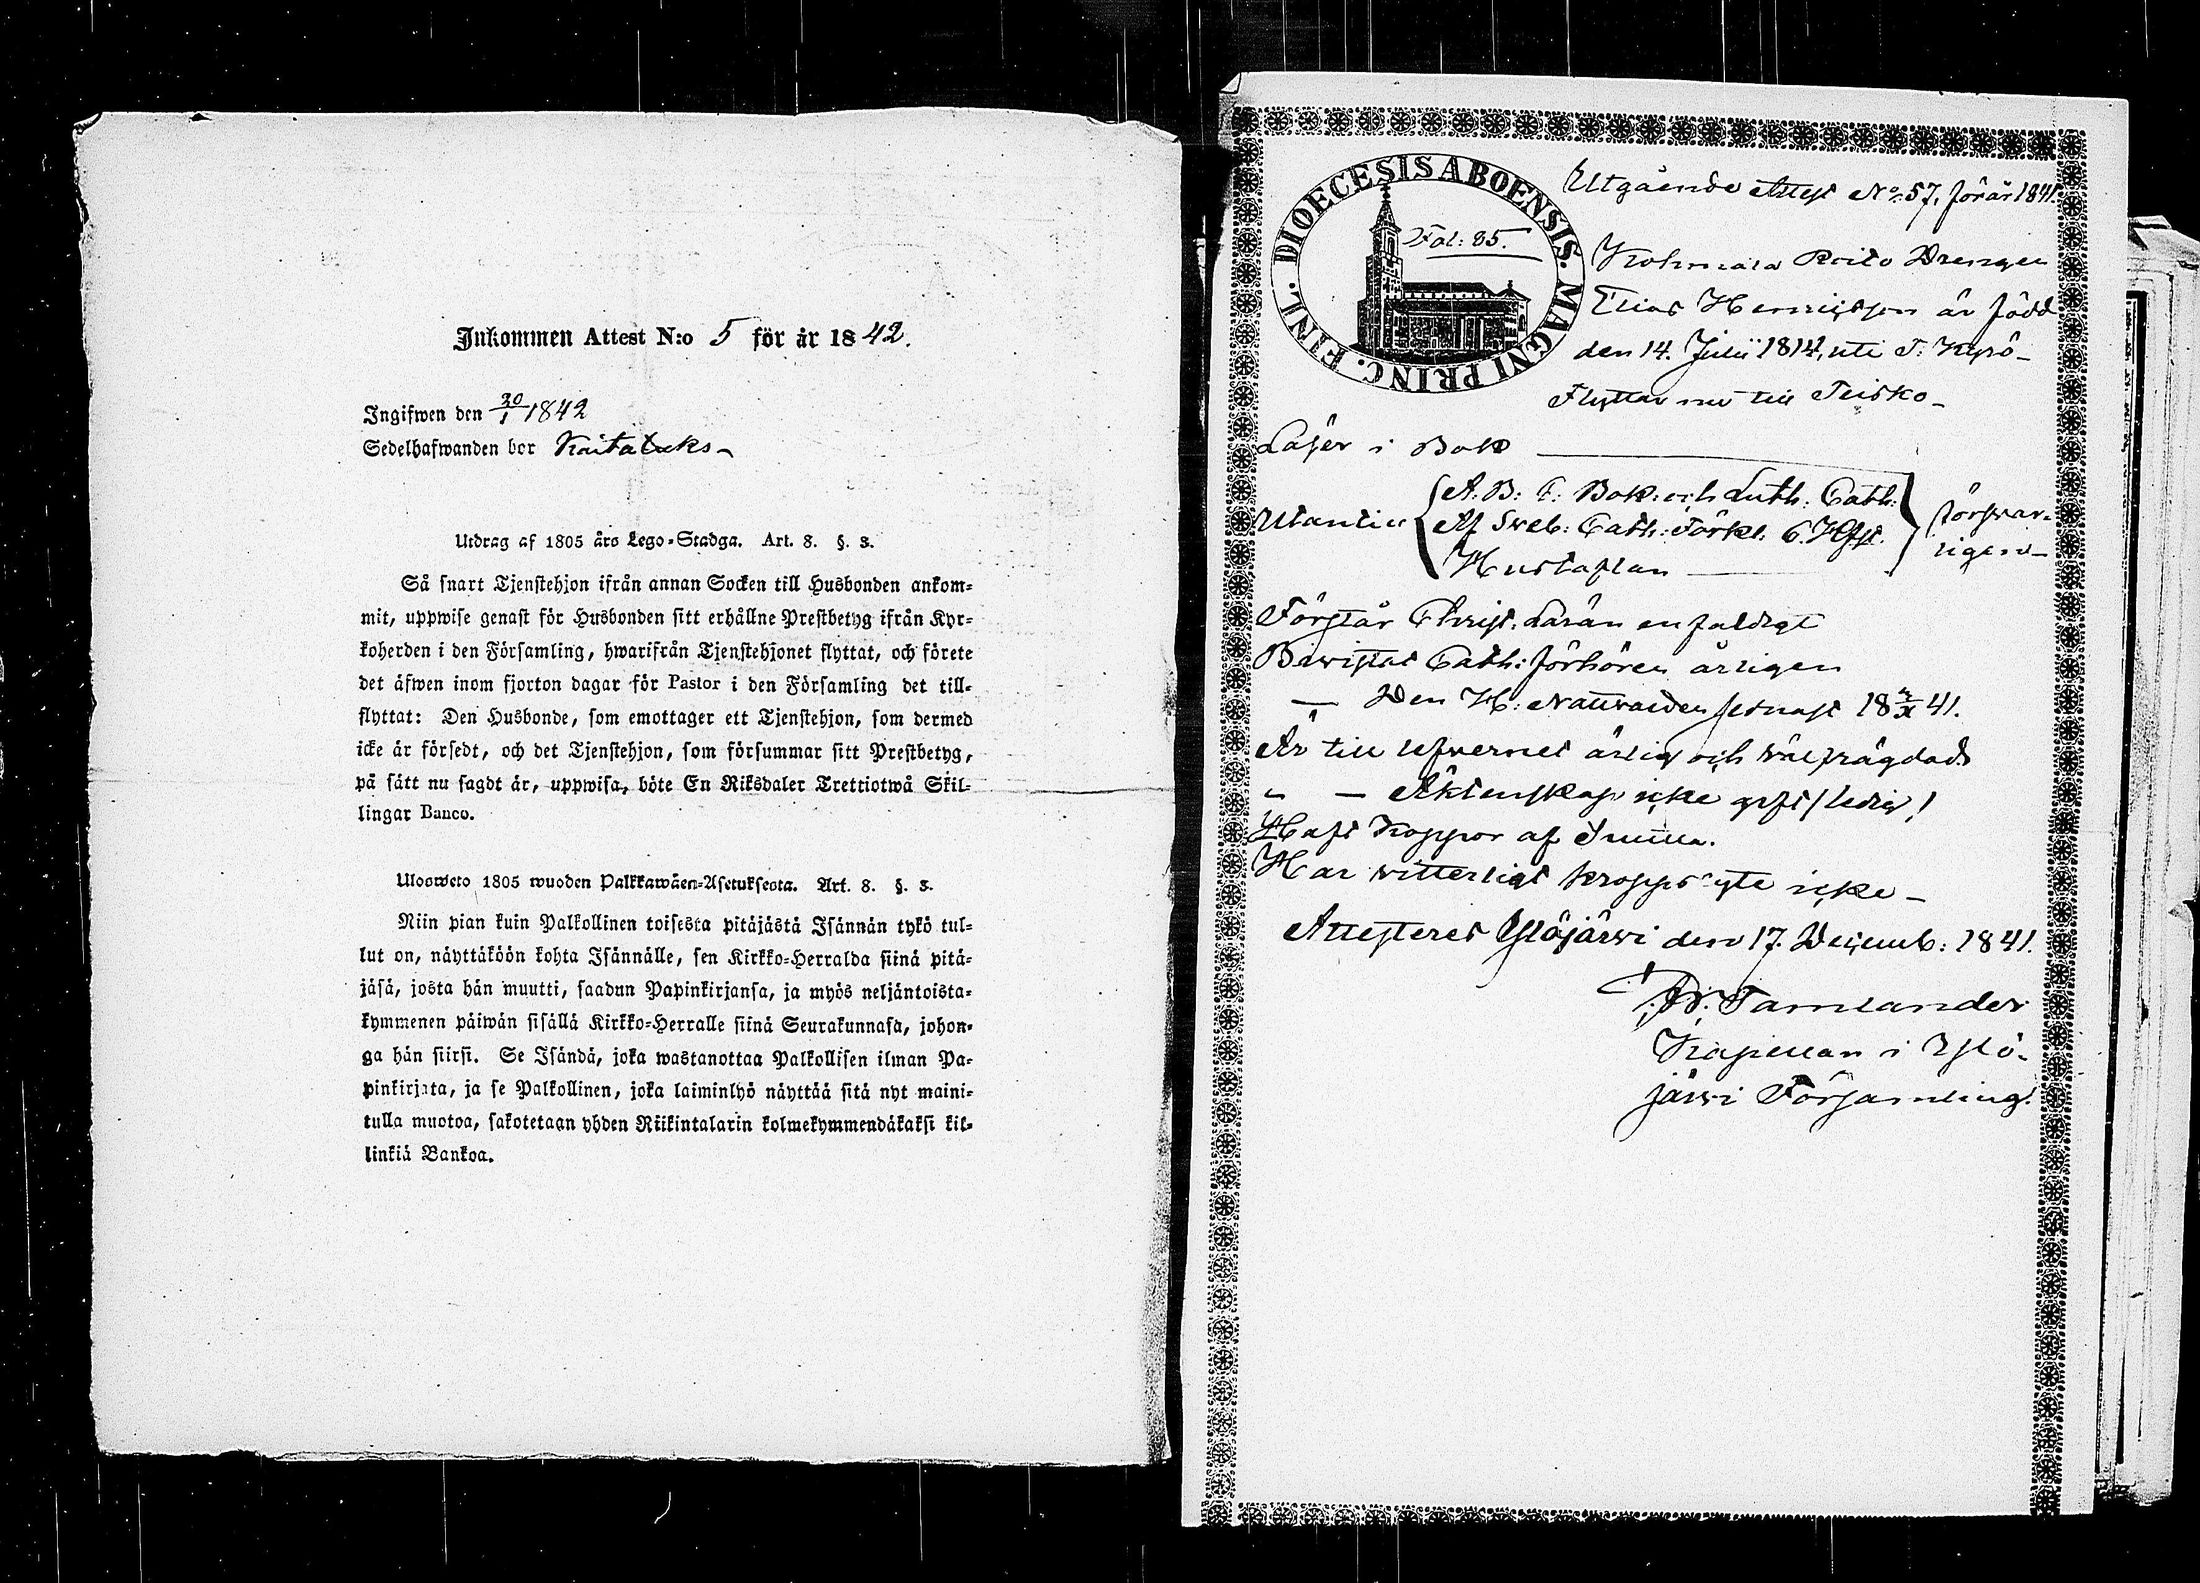 Inkommen Attest N:o 5 för år 1842.
Ingifwen den 30/1 1842
Sedelhafwanden bor
Utdrag af 1805 års Lego-Stadga. Art. 8. §. 3.
Så snart Tjenstehjon ifrån annan Socken till Husbonden ankom-
mit, uppwise genast för Husbonden sitt erhållne Prestbetyg ifrån Kyr-
koherden i den Församling, hwarifrån Tjenstehjonet flyttat, och förete
det äfwen inom fjorton dagar för Pastor i den Församling det till-
flyttat: Den Husbonde, som emottager ett Tjenstehjon, som dermed
icke är försedt, och det Tjenstehjon, som försummar sitt Prestbetyg,
på sätt nu sagdt är, uppwisa, böte En Riksdaler Trettiotwå Skil-
lingar Banco.
Ulosweto 1805 wuoden Palkkawäen-Asetuksesta. Art. 8. §. 3.
Niin pian kuin Palkollinen toisesta pitäjästä Isännän tykö tul-
lut on, näyttäköön kohta Isännälle, sen Kirkko-Herralda siinä pitä-
jäsä, josta hän muutti, saadun Papinkirjansa, ja myös neljäntoista-
kymmenen päiwän sisällä Kirkko-Herralle siinä Seurakunnasa, johon-
ga hän siirsi. Se Isändä, joka wastanottaa Palkollisen ilman Pa-
pinkirjata, ja se Palkollinen, joka laiminlyö näyttää sitä nyt maini-
tulla muotoa, sakotetaan yhden Riikintalarin kolmekymmendäkaksi kil-
linkiä Bankoa.
DIOECESIS ABOENSIS. MAGNI PRINC. FINL.
Fol: 85.
Utgående Attest No 57, för år 1841.
Drengen
Elias Henricsson är född
den 14. Julii 1814, uti T: Kyrö-
Flyttar nu till Teisko-
Läser i Bok
Utantill A. B: C: Bok: och Luth. Cath:
Af Sveb: Cath: Förkl. 6. Hfst.
Hustaflan
försvar-
ligen-
Förstår Christ: Läran enfaldigt
Bewistat Cath: förhören årligen
— Den H: Nattvarden sednast 18 41.
Är till lefvernet ärlig och välfrägdad
" — Äktenskap icke gift / ledig /
Haft Koppor af Smitta.
Har vitterligt kroppslyte icke-
Attesteras Ylöjärvi den 17. Decemb: 1841.
Tamlander
Kapellan i Ylö-
järvi Församling.